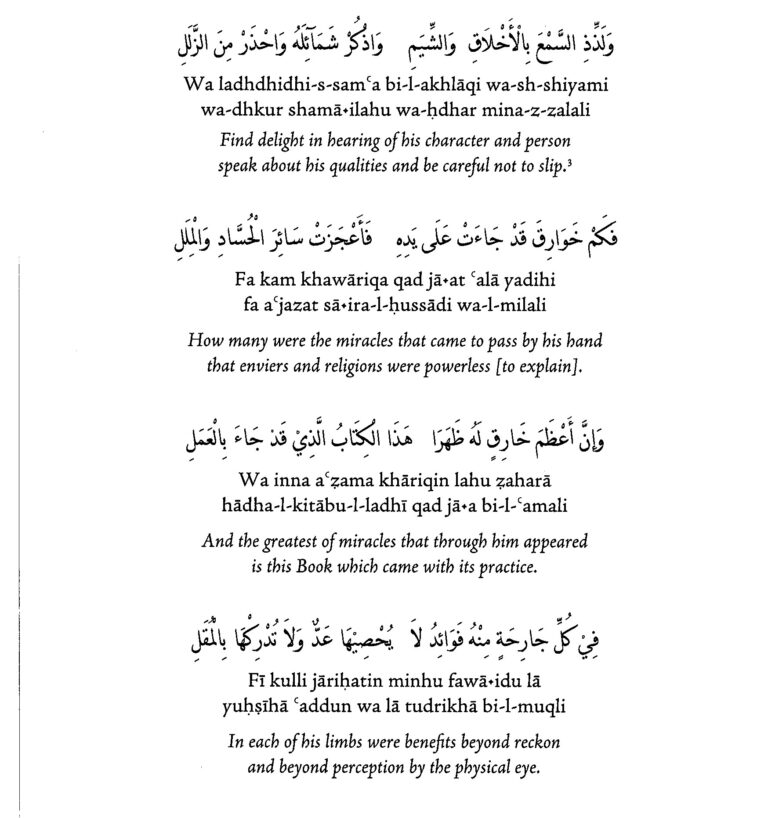 وَلَذِّذِ السَّمْعَ بِالْأَخْلَاقِ وَالشِّيَمِ وَاذْكُرْ شَمَآئِلَهُ وَاحْذَرْ مِنَ الزَّلَلِ
Wa ladhdhidhi-s-samʿa bi-l-akhlāqi wa-sh-shiyami
wa-dhkur shamā•ilahu wa-ḥdhar mina-z-zalali
Find delight in hearing of his character and person
speak about his qualities and be careful not to slip.³
فَكَمْ خَوَارِقَ قَدْ جَاءَتْ عَلَى يَدِهِ فَأَعْجَزَتْ سَائِرَ الْحُسَّادِ وَالْمِلَلِ
Fa kam khawāriqa qad jā•at ʿalā yadihi
fa aʿjazat sā•ira-l-ḥussādi wa-l-milali
How many were the miracles that came to pass by his hand
that enviers and religions were powerless [to explain].
وَإِنَّ أَعْظَمَ خَارِقٍ لَهُ ظَهَرَا هَذَا الْكِتَابُ الَّذِيْ قَدْ جَاءَ بِالْعَمَلِ
Wa inna aʿẓama khāriqin lahu ẓaharā
hādha-l-kitābu-l-ladhī qad jā•a bi-l-ʿamali
And the greatest of miracles that through him appeared
is this Book which came with its practice.
فِيْ كُلِّ جَارِحَةٍ مِنْهُ فَوَائِدُ لاَ يُحْصِيْهَا عَدٌّ وَلاَ تُدْرِكْهَا بِالْمُقَلِ
Fī kulli jāriḥatin minhu fawā•idu lā
yuḥṣīhā ʿaddun wa lā tudrikhā bi-l-muqli
In each of his limbs were benefits beyond reckon
and beyond perception by the physical eye.